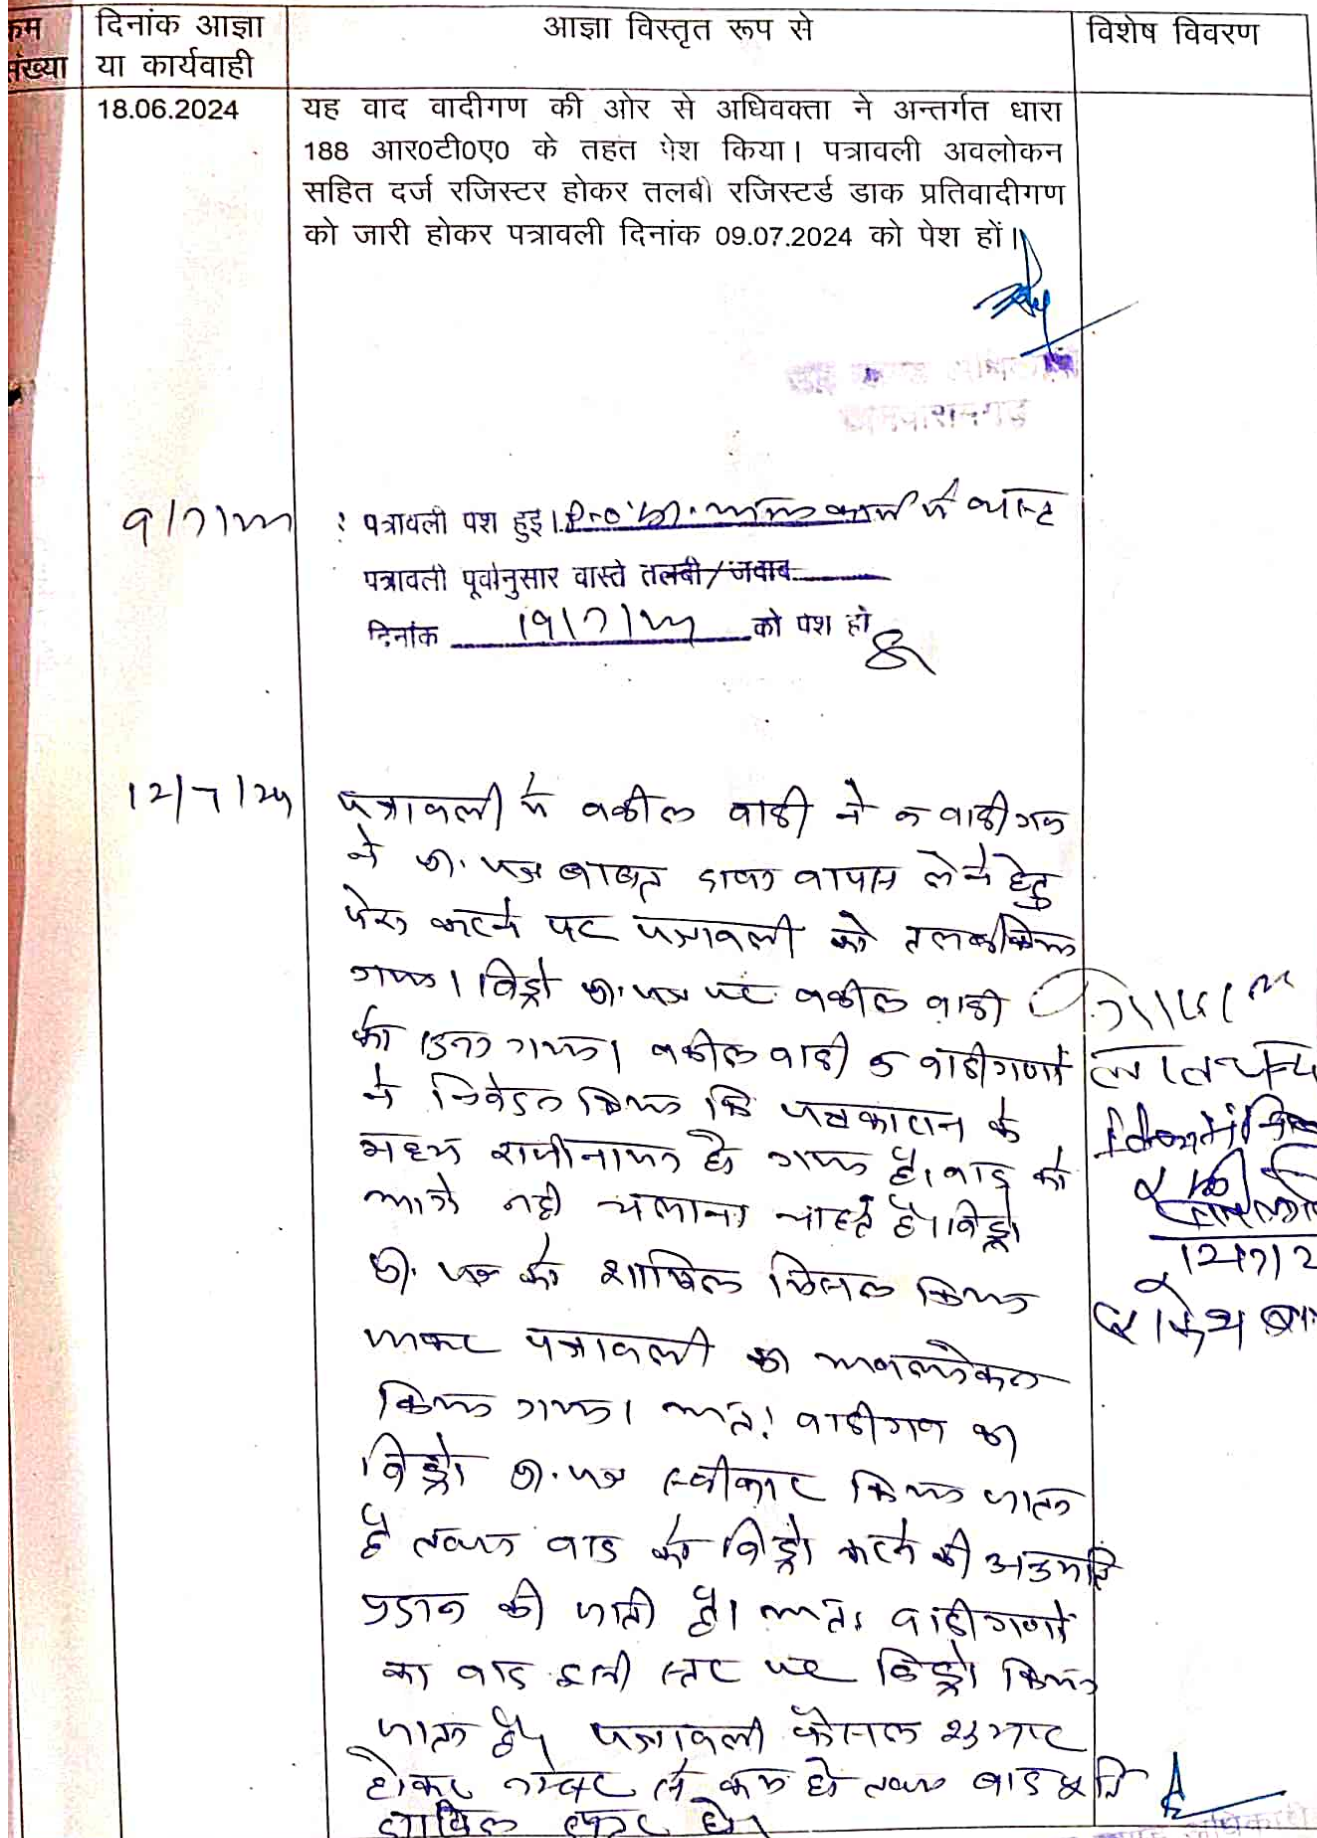 क्रम
संख्या
दिनांक आज्ञा
या कार्यवाही
आज्ञा विस्तृत रूप से
विशेष विवरण
18.06.2024
यह वाद वादीगण की ओर से अधिवक्ता ने अन्तर्गत धारा
188 आर0टी0ए0 के तहत पेश किया। पत्रावली अवलोकन
सहित दर्ज रजिस्टर होकर तलबी रजिस्टर्ड डाक प्रतिवादीगण
को जारी होकर पत्रावली दिनांक 09.07.2024 को पेश हों।
9/7/24
पत्रावली पेश हुई। P.O. कार्य में व्यस्त
पत्रावली पूर्वानुसार वास्ते तलबी/जवाब
दिनांक 19/7/24 को पेश हो
12/7/24
पत्रावली में वकील वादी ने व वादीगण
ने प्रा. पत्र बाबत दावा वापस लेने हेतु
पेश करने पर पत्रावली को तलब किया
गया। विड्रो प्रा. पत्र पर वकील वादी
को सुना गया। वकील वादी व वादीगणों
ने निवेदन किया कि पक्षकारान के
मध्य राजीनामा हो गया है। वाद को
आगे नहीं चलाना चाहते है। विड्रो
प्रा. पत्र को शामिल मिसल किया
जाकर पत्रावली का अवलोकन
किया गया। अतः वादीगण का
विड्रो प्रा. पत्र स्वीकार किया जाता
है तथा वाद को विड्रो करने की अनुमति
प्रदान की जाती है। अतः वादीगणों
का वाद इसी स्तर पर विड्रो किया
जाता है। पत्रावली फैसल शुमार
होकर नम्बर से कम हो तथा बाद पूर्ति
दाखिल दफ्तर हो।
12/7/2